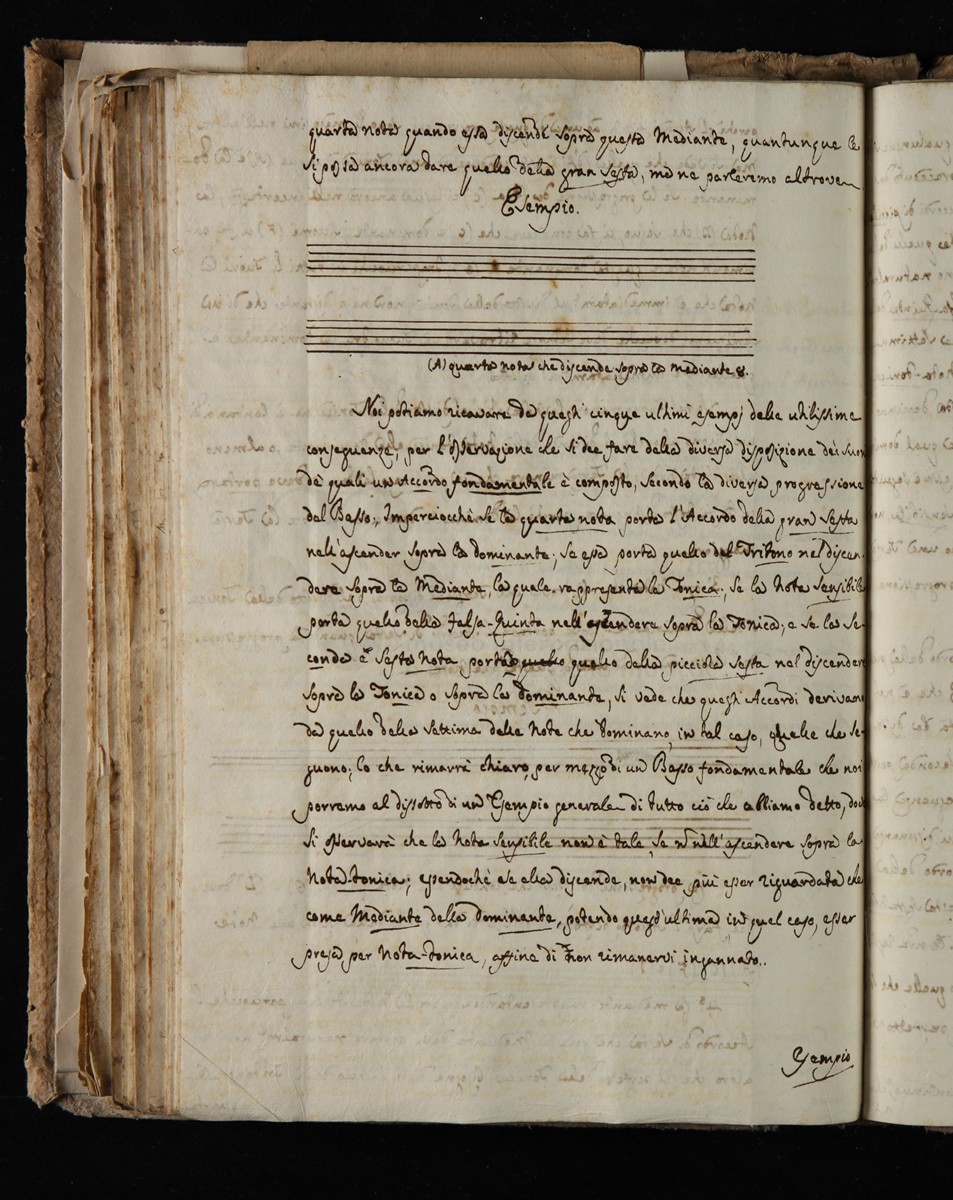 quarta nota quando essa discende sopra questa Mediante, quantunque le
si possa ancora dare quello della gran sesta, ma ne parleremo altrove
Esempio.
(A) quarta nota che discende sopra la Mediante 8.
Noi potiamo ricavare da questi cinque ultimi esempj delle utilissime
conseguenze, per l'osservazione che si dee fare della diversa disposizione dei Suoni
de quali un Accordo fondamentale è composto, secondo la diversa progressione
del Basso; Imperciocchè se la quarta nota porta l'Accordo della gran sesta
nell'ascender sopra la dominante; se essa porta quello del Tritono nel discen-
dere sopra la Mediante, la quale rappresenta la Tonica; se la Nota sensibile
porta quello della falsa-Quinta nell'ascendere sopra la Tonica; e se la se-
conda e sesta Nota porta quello della picciola sesta nel discendere
sopra la Tonica o sopra la dominante, si vede che questi Accordi derivano
da quello della settima delle Note che dominano in tal caso, quelle che se-
guono; lo che rimarrà chiaro per mezzo di un Basso fondamentale che noi
porremo al dissotto di un Esempio generale di tutto ciò che abbiamo detto, dove
si osservarà che la Nota sensibile non è tale, se nò nell'ascendere sopra la
Nota-tonica; essendochè se ella discende, non dee più esser riguardata che
come Mediante della dominante, potendo quest'ultima in quel caso, esser
presa per Nota-tonica, affine di non rimanervi ingannato.
Esempio